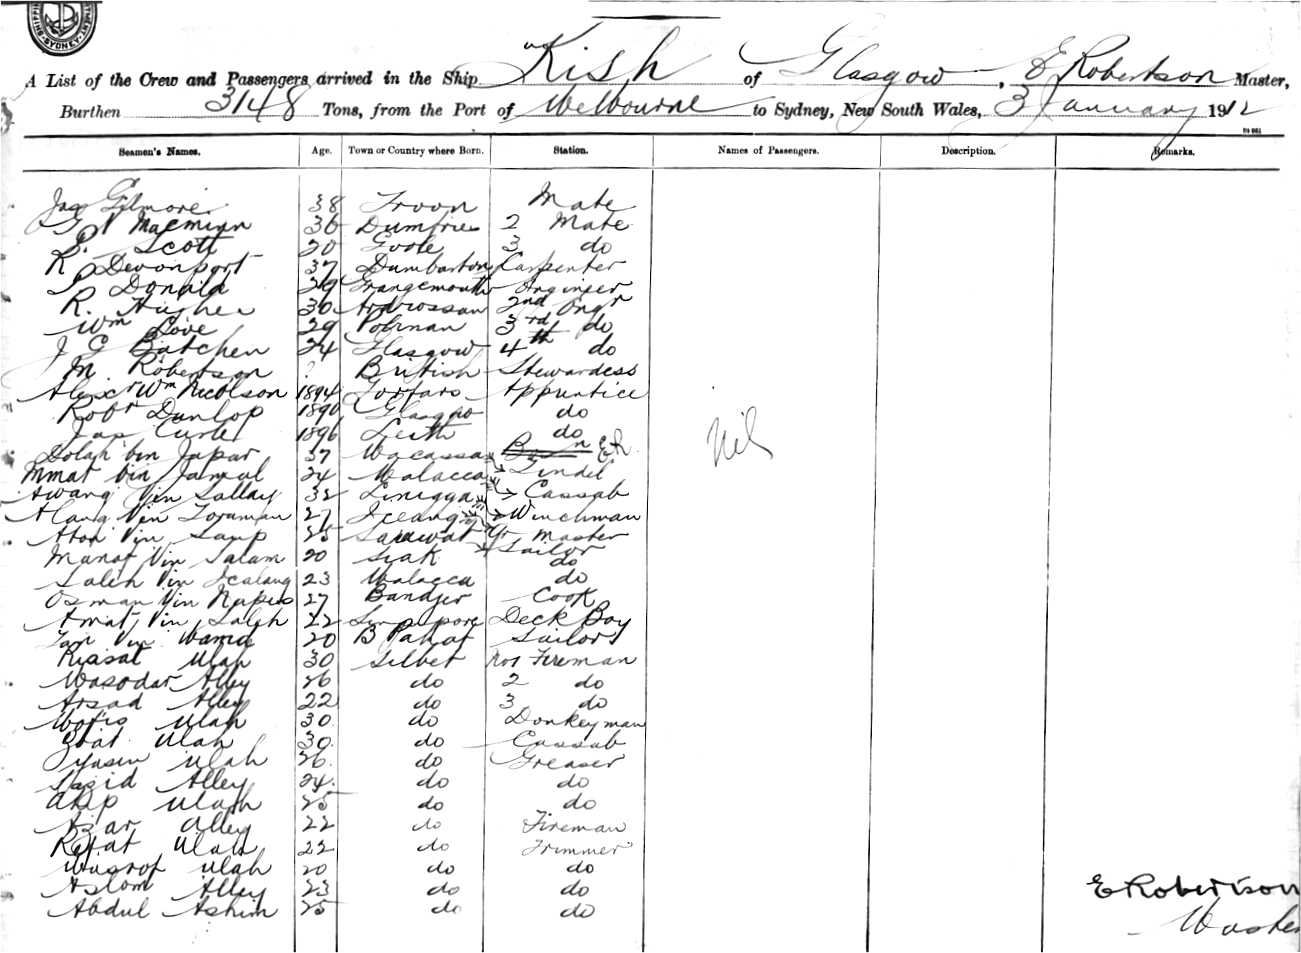 SYDNEY
A List of the Crew and Passengers arrived in the Ship "Kish of Glasgow, E Robertson Master,
Burthen 3148 Tons, from the Port of Melbourne to Sydney, New South Wales, 3 January 1912
Seamen's Names. Age. Town or Country where Born. Station. Names of Passengers. Description. Remarks.
Jas Gilmore 38 Troon Mate
Macminn 36 Dumfries 2 Mate
Scott 20 Goole 3 do
R Devonport 37 Dumbarton Carpenter
Donald 39 Grangemouth Enginser
R. Hughes 30 Ardrossan 2nd Engr
Wm Love 29 Polman 3rd do
J G Batchen 24 Glasgow 4th do
M Robertson ? British Stewardess
Alexr Wm Nicolson 1894 Forfars Apprentice
Robt Dunlop 1890 Glasgow do
Jas 1896 Leith do
Dolah bin Japar 37 Macassa E.R.
Mmat bin Jamal 24 Malacca Tindel
Awang bin Sallay 32 Lingga Cassab
Alang bin 27 Winchman
bin 25 Sarawat Qr Master
Manaf bin Salam 20 Siak Sailor
do
Saleh bin 23 Malacca do
Osman bin Napis 27 Bandjer Cook
Amat bin Saleh 22 Singapore Deck Boy
bin 20 B Pahat Sailor
Riasat Ulah 30 Silbet No1 Fireman
Wasodar Alley 26 do 2 do
Arsad Alley 22 do 3 do
Ulah 30 do Donkeyman
Ulah 30 do Cassab
Yasin Ulah 26 do Greaser
Sasid Alley 24 do do
Akip Ulah 25 do do
Asar Alley 22 do Fireman
Ulah 22 do Trimmer
Ulah 20 do do
Aslom Alley 23 do do
Abdul Ashim 25 do do
Nil
E Robertson
Master